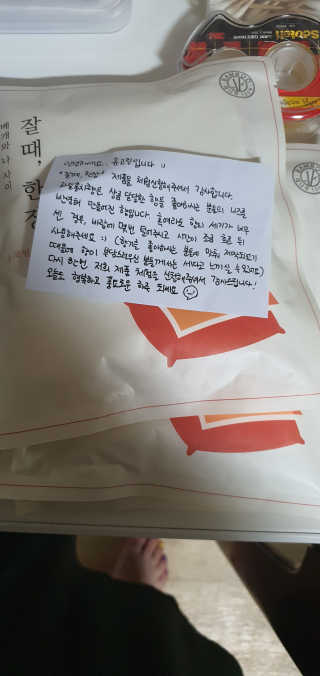 Scotch
베개와 나 사이
잘 때, 한
안녕하세요. 입니다 :)
제품을 체험신청해주셔서 감사합니다.
상큼 달달한 향을 좋아하시는 분들의 니즈를
반영해 만들어진 향입니다. 혹여라도 향의 세기가 너무
센 경우, 바람에 몇번 털어주시고 시간이 조금 흐른 뒤
사용해주세요 :) (향기를 좋아하시는 분들께 맞춰 제작되었기
때문에 향이 분들께서는 세다고 느끼실 수 있어요)
다시 한번, 저희 제품 체험을 신청해주셔서 감사드립니다!
오늘도 행복하고 풍요로운 하루 되세요